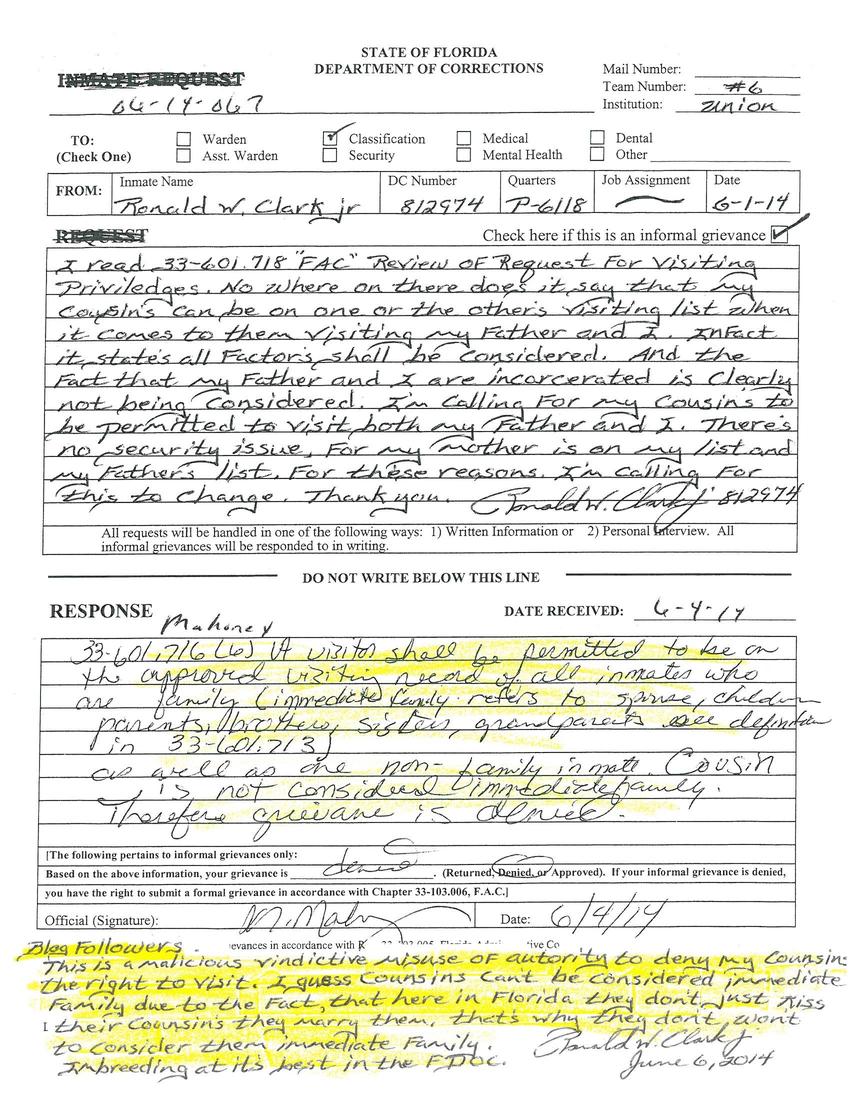 STATE OF FLORIDA
DEPARTMENT OF CORRECTIONS
INMATE REQUEST
06-14-067
Mail Number:
Team Number: #6
Institution: Union
TO: Warden Classification Medical Dental
(Check One) Asst. Warden Security Mental Health Other
FROM: Inmate Name DC Number Quarters Job Assignment Date
Ronald W. Clark jr 812974 P-6118 6-1-14
REQUEST Check here if this is an informal grievance
I read 33-601.718 "FAC" Review OF Request For Visiting
Priviledges. No where on there does it say that my
Cousin's can be on one or the other's visiting list when
it comes to them visiting my Father and I. InFact
it state's all Factor's shall be considered. And the
Fact that my Father and I are incorcerated is Clearly
not being Considered. I'm Calling For my Cousin's to
be permitted to visit both my Father and I. There's
no security issue, For my mother is on my list and
my Father's list. For these reasons. I'm calling For
this to Change. Thank you. Ronald W. Clark Jr 812974
All requests will be handled in one of the following ways: 1) Written Information or 2) Personal Interview. All
informal grievances will be responded to in writing.
DO NOT WRITE BELOW THIS LINE
RESPONSE Mahoney DATE RECEIVED: 6-4-14
33-601.716 (6) A visitor shall be permitted to be on
the approved visiting record of all inmates who
are family (immediate family refers to spouse, children
parents, brothers, sisters, grandparents see definition
in 33-601.713)
as well as one non-family inmate. Cousin
is not considered immediate family.
Therefore grievance is denied.
[The following pertains to informal grievances only:
Based on the above information, your grievance is denied. (Returned, Denied, or Approved). If your informal grievance is denied,
you have the right to submit a formal grievance in accordance with Chapter 33-103.006, F.A.C.]
Official (Signature): M. Mahoney Date: 6/4/14
evances in accordance with R
Blog Followers.
This is a malicious vindictive misuse of autority to deny my Counsins
the right to visit. I guess Counsins Can't be considered immediate
Family due to the Fact, that here in Florida they don't just Kiss
their Counsin's they marry them, that's why they don't won't
to Consider them immediate Family.
Imbreeding at it's best in the FDOC. Ronald W. Clark Jr
June 6, 2014